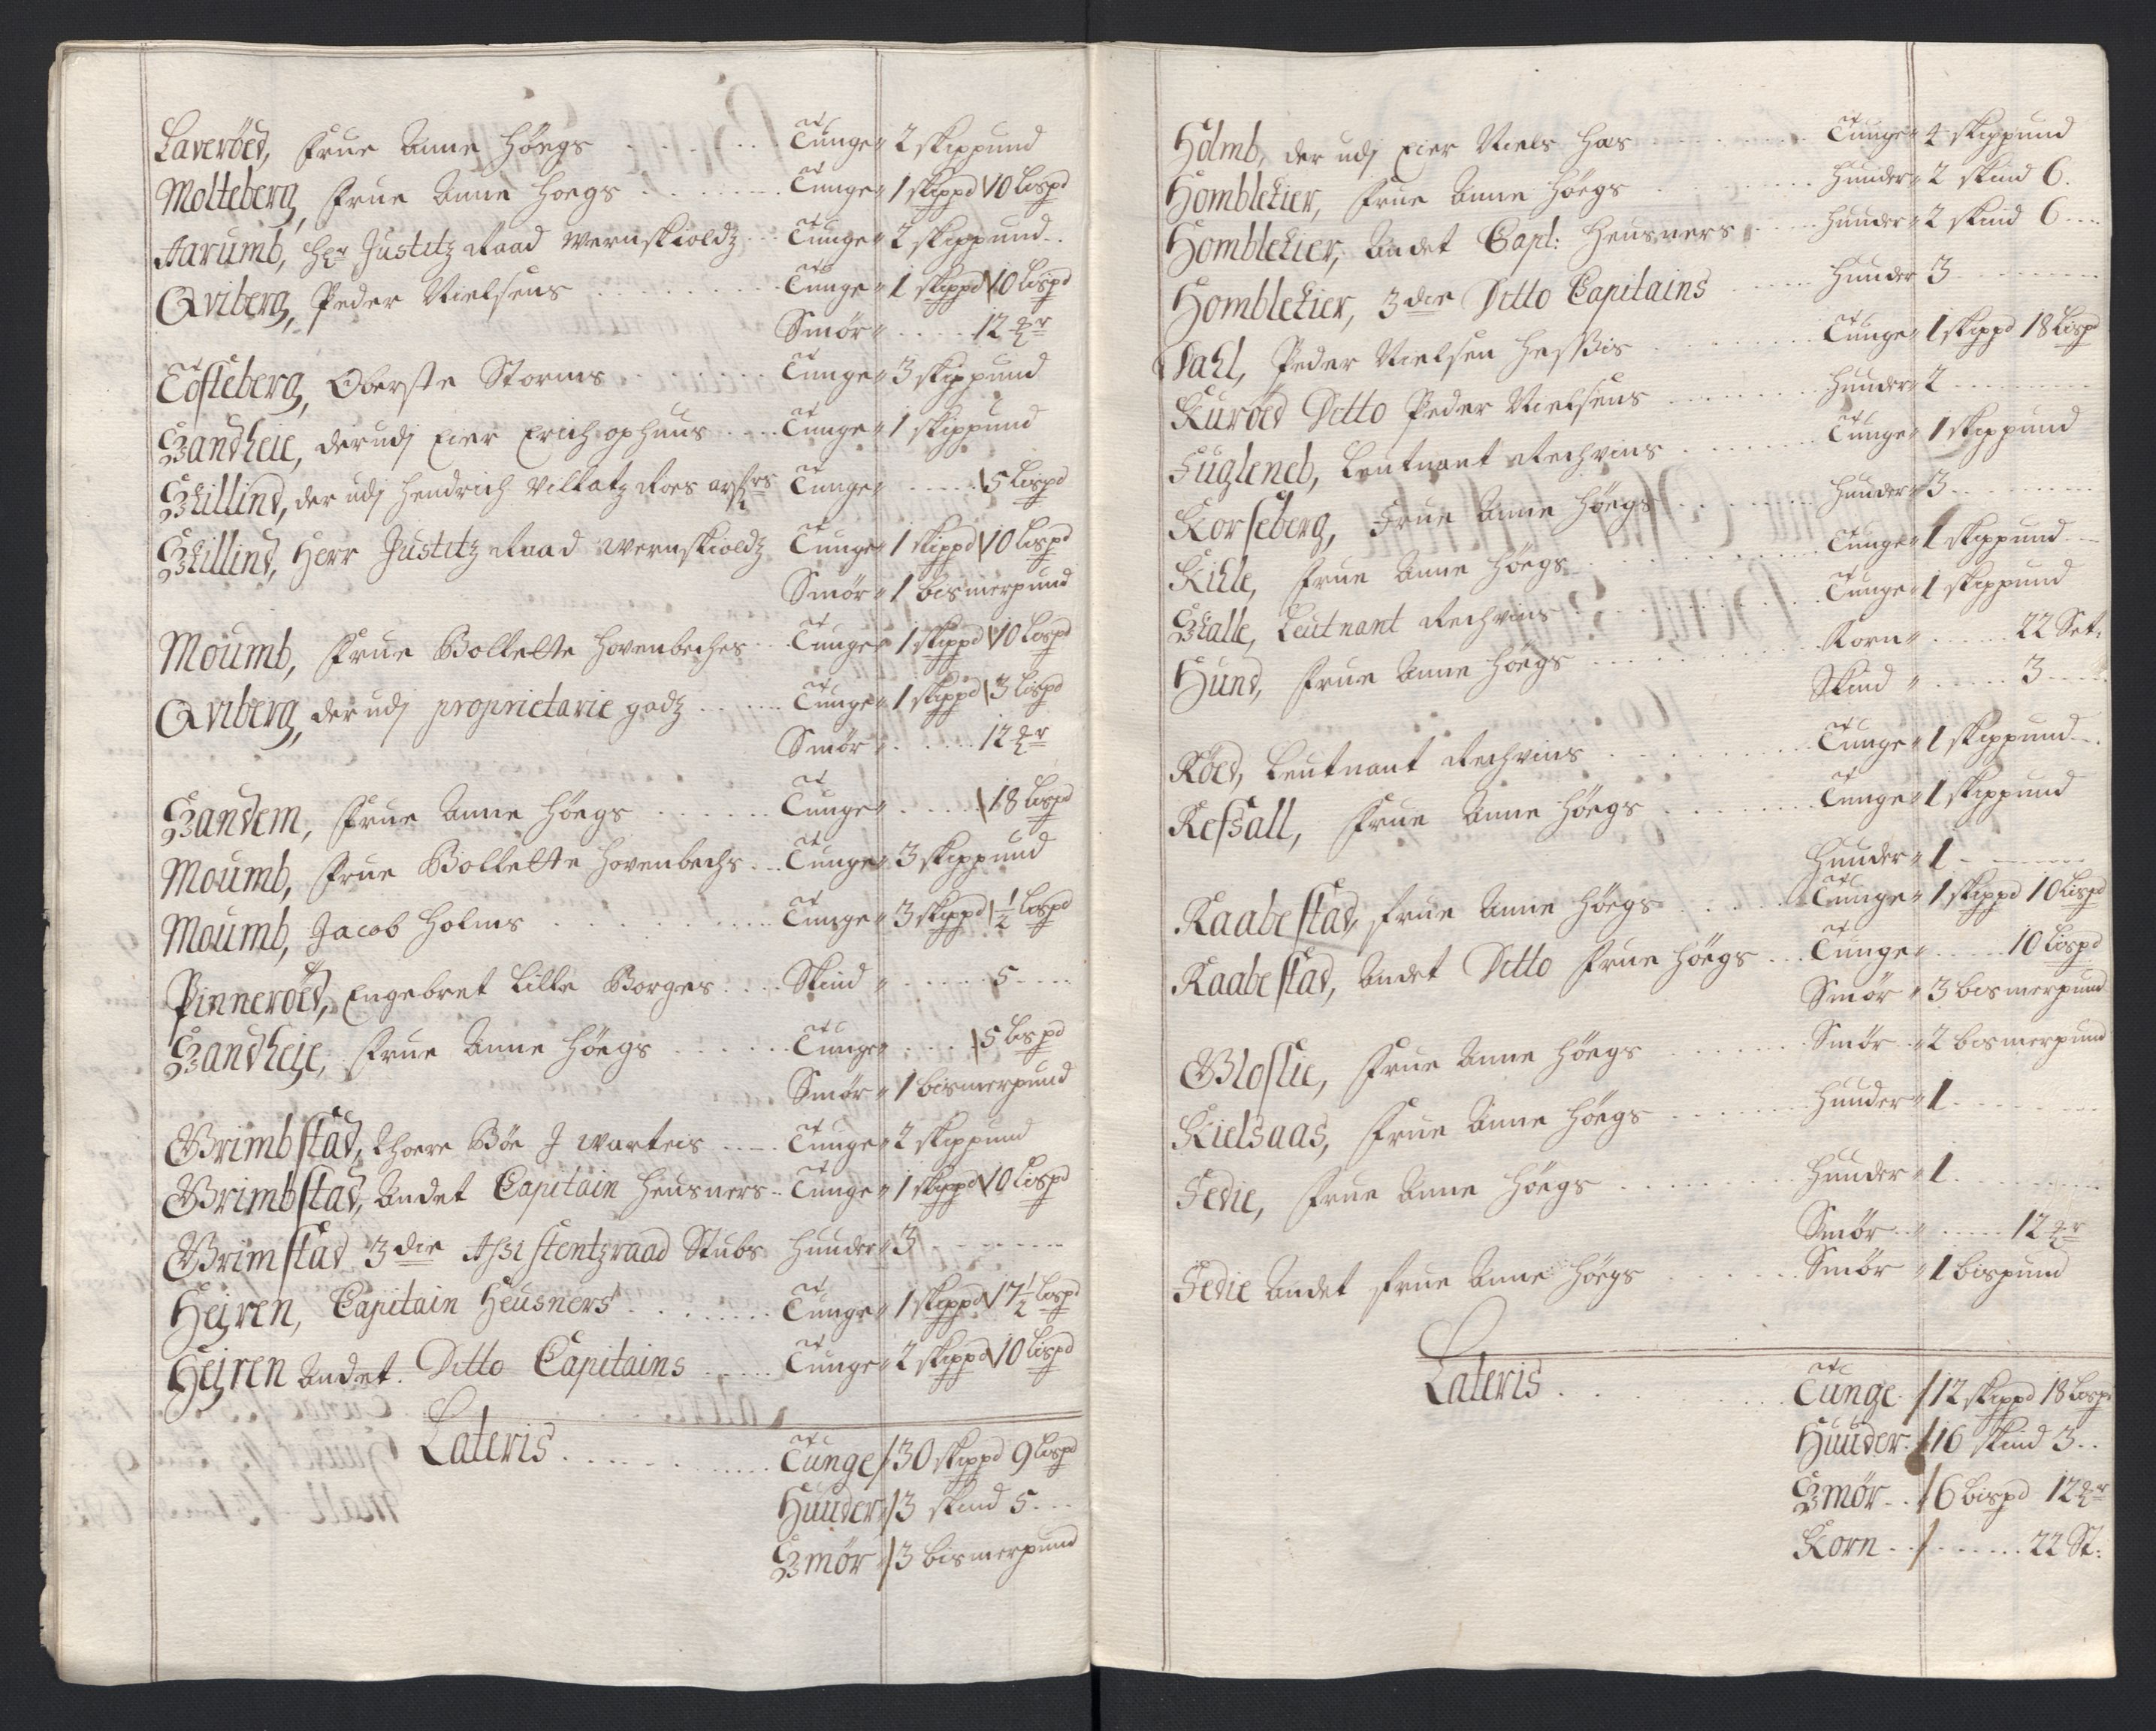 Laveröed, Frue Anne Höegs . . . . . Tunge " 2 skippund
Molteberg, Frue Anne Hoegs . . . . . Tunge " 1 skippd 10 Lispd
Aarumb, Hr Justitz Raad Wernskioldz . . Tunge " 2 skippund . .
Qviberg, Peder Nielsens . . . . . Tunge " 1 skippd 10 Lispd
Smör " . . . . 12
Tofteberg, Oberste Storms . . . . . Tunge " 3 skippund
Sandheie, der udj Eier Erich ophuus . . . Tunge " 1 skippund
Skillind, der udj Hendrich Roes Tunge " . . . . 5 Lispd
Skillind, Herr Justitz Raad Wernskioldz Tunge " 1 skippd 10 Lispd
Smör " 1 bismerpund
Moumb, Frue Bollette Hovenbeches . . Tunge " 1 skippd 10 Lispd
Qviberg, der udj proprietarie godz . . . . Tunge " 1 skippd 3 Lispd
Smör " . . . . 12
Sandem, Frue Anne Höegs . . . . . Tunge " . . . . 18 Lispd
Moumb, Frue Bollette Hovenbechs . . Tunge " 3 skippund
Moumb, Jacob Holms . . . . . Tunge " 3 skippd 1/2 Lispd
Pinneröed, Engebret Lille Borges . . . Skind " . . . . 5 . . .
Sandheje, Frue Anne Höegs . . . . . Tunge " . . . . 5 Lispd
Smör " 1 bismerpund
Grimbstad, Thore Böe J Warteis . . . Tunge " 2 skippund
Grimbstad, Andet Capitain Heusners . . Tunge " 1 skippd 10 Lispd
Grimstad 3die Assistentzraad Stubs Huuder " 3 . . . .
Hejren, Capitain Heusners . . . . . Tunge " 1 skippd 17 1/2 Lispd
Hejren Andet. Ditto Capitains . . . . Tunge " 2 skippd 10 Lispd
Lateris . . . . . Tunge / 30 skippd 9 Lispd
Huuder / 3 skind 5 . . .
Smör / 3 bismerpund
Holmb, der udj Eier Niels Has . . . . . Tunge " 4 skippund
Homblekier, Frue Anne Höegs . . . . . Huuder " 2 skind 6 .
Homblekier, Andet Capt: Heusners . . . Huuder " 2 skind 6 . . .
Homblekier, 3die Ditto Capitains . . . . Huuder 3 . . . .
Dahl, Peder Nielsen Hessis . . . . . Tunge " 1 skippd 18 Lispd
Kuröed Ditto Peder Nielsens . . . . . Huuder " 2 . . . .
Fugleneb, Leutnant Rechvins . . . . . Tunge " 1 skippund
Korseberg, Frue Anne Höegs . . . . . Huuder " 3 . . . .
Kihle, Frue Anne Höegs . . . . . Tunge " 1 skippund . . .
Skalle, Leutnant Rechvins . . . . . Tunge " 1 skippund
Hund, Frue Anne Höegs . . . . . Korn " . . . . 22 Set:
Skind " . . . . 3 . . .
Röed, Leutnant Rechvins . . . . . Tunge " 1 skippund . .
Refsall, Frue Anne Höegs . . . . . Tunge " 1 skippund
Huuder " 1 . . . .
Raabestad, Frue Anne Höegs . . . . . Tunge " 1 skippd 10 Lispd
Raabestad, Andet Ditto Frue Höegs . . . Tunge " . . . . 10 Lispd
Smör " 3 bismerpund
Gloslie, Frue Anne Höegs . . . . . Smör " 2 bismerpund
Kielsaas, Frue Anne Höegs . . . . . Huuder " 1 . . . .
Fedie, Frue Anne Höegs . . . . . Huuder " 1 . . . .
Smör " . . . . 12
Fedie Andet Frue Anne Höegs . . . . . Smör " 1 bispund
Lateris . . . . . Tunge / 12 skippd 18 Lispd
Huuder / 16 skind 3 . .
Smör . . / 6 bispd 12
Korn . . / . . . . 22 St: